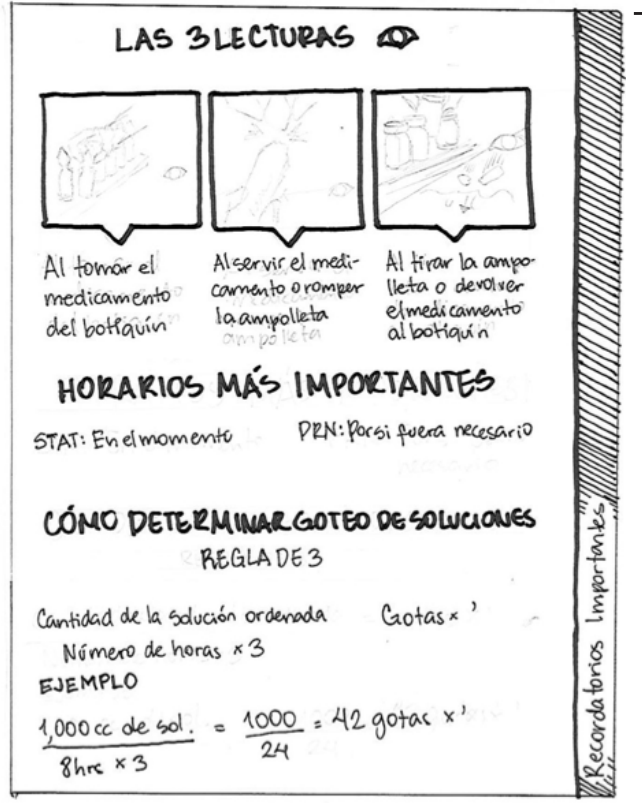 LAS 3 LECTURAS
Al tomar el
medicamento
del botiquín
Al servir el medi-
camento o romper
la ampolleta
Al tirar la ampo-
lleta o devolver
el medicamento
al botiquín
HORARIOS MÁS IMPORTANTES
STAT: En el momento
PRN: Por si fuera necesario
CÓMO DETERMINAR GOTEO DE SOLUCIONES
REGLA DE 3
Cantidad de la solución ordenada Gotas x '
Número de horas x 3
EJEMPLO
1,000 cc de sol. = 1000 = 42 gotas x '
8hrs x 3 24
Recordatorios Importantes